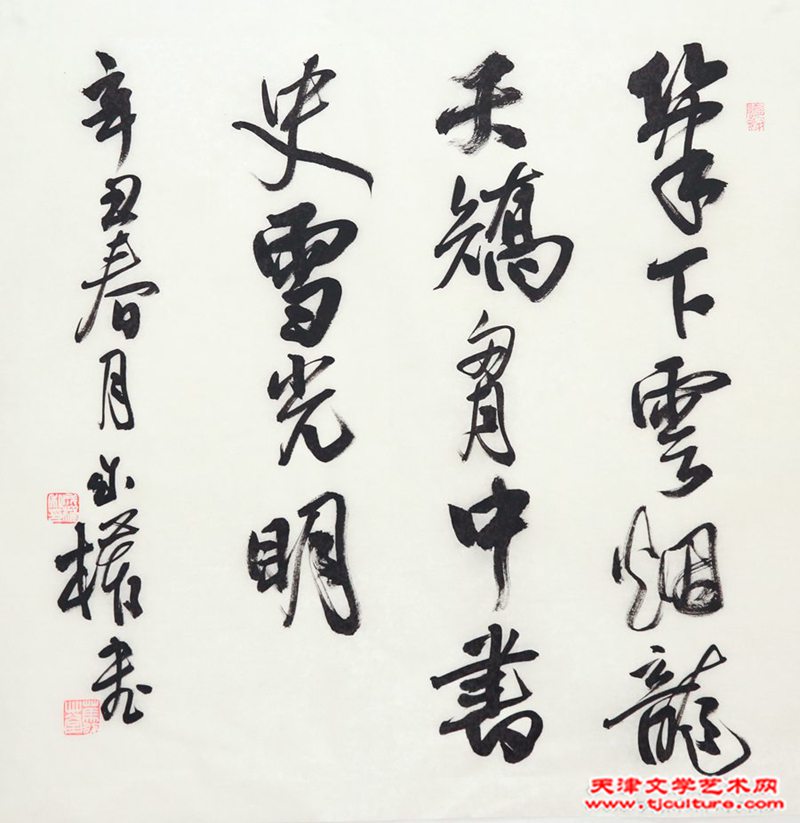 筆下雲烟龍
夭矯胷中書
史雪光明
辛丑春月書
天津文学艺术网
www.tjculture.com